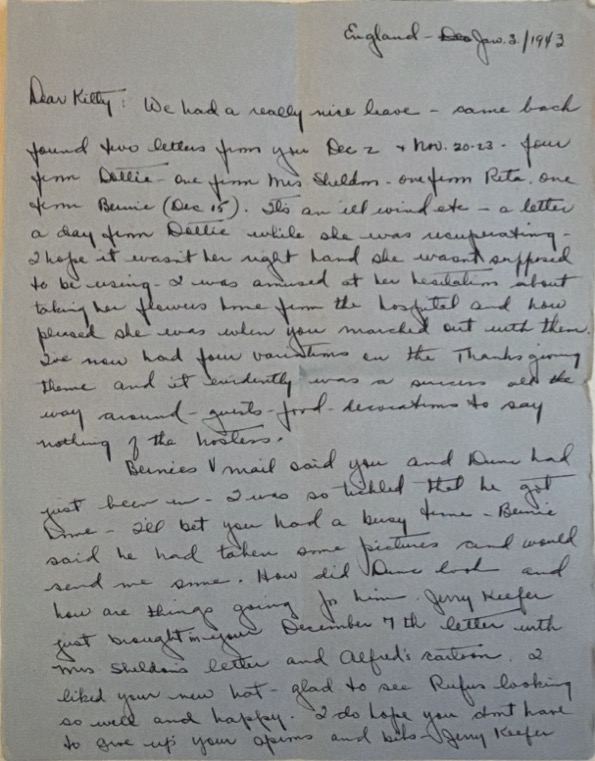 England - Dec Jan. 3./1943
Dear Kitty: We had a really nice leave - came back
found two letters from you Dec 2 + Nov. 20-23 - four
from Dollie - one from Mrs Sheldon - one from Rita, one
from Bernie (Dec 15). It's an ill wind etc - a letter
a day from Dollie while she was recuperating -
I hope it wasn't her right hand she wasn't supposed
to be using - I was amused at her hesitation about
taking her flowers home from the hospital and how
pleased she was when you marched out with them.
I've now had four variations on the Thanksgiving
theme and it evidently was a success all the
way around - guests - food - decorations to say
nothing of the hostess.
Bernies V mail said you and Dunc had
just been in - I was so tickled that he got
home - I'll bet you had a busy time - Bernie
said he had taken some pictures and would
send me some. How did Dunc look and
how are things going for him. Jerry Keefer
just brought in your December 7th letter with
Mrs Sheldon's letter and Alfred's cartoon. I
liked your new hat - glad to see Rufus looking
so well and happy. I do hope you dont have
to give up your and - Jerry Keefer